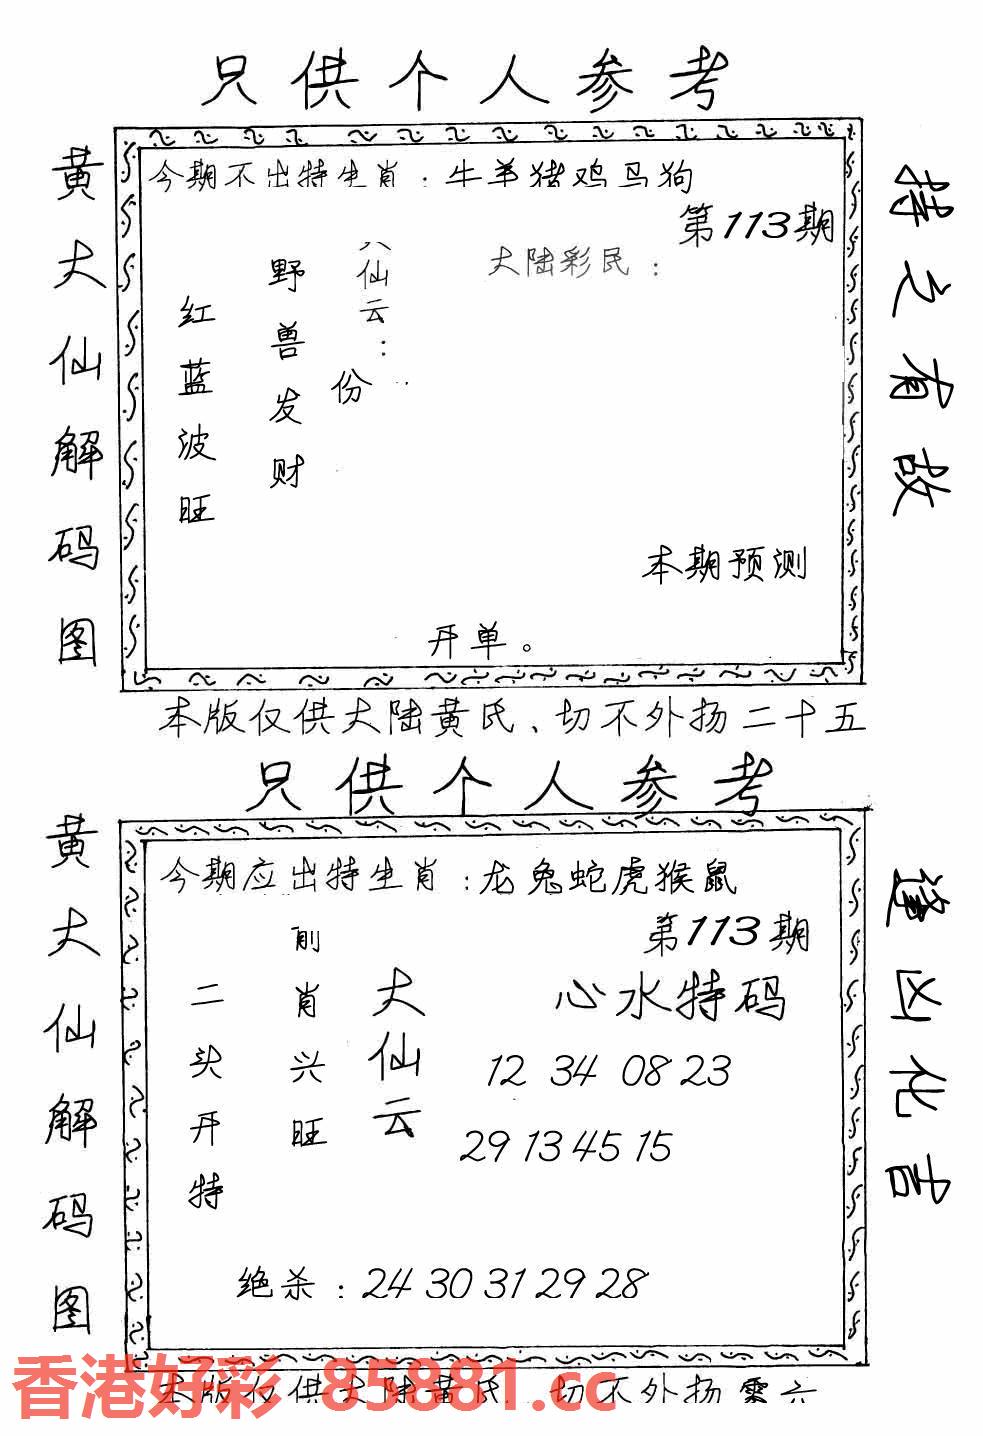 只供个人参考
黄大仙解码图
今期不出特生肖：牛羊猪鸡马狗
第113期
大陆彩民：
仙云：
份
野兽发财
红蓝波旺
本期预测
开单。
持之有故
本版仅供大陆黄氏、切不外扬二十五
只供个人参考
黄大仙解码图
今期应出特生肖：龙兔蛇虎猴鼠
第113期
心水特码
12 34 08 23
29 13 45 15
大仙云
前肖兴旺
二头开特
绝杀：24 30 31 29 28
逢凶化吉
本版仅供大陆黄氏、切不外扬零六
香港好彩 85881.cc